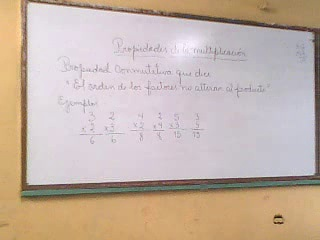 Propiedades de la multiplicación
Propiedad Conmutativa que dice
"El orden de los factores no alteran el producto"
Ejemplos
3 2 4 2 5 3
x 2 x 3 x 2 x 4 x 3 5
6 6 8 8 15 15